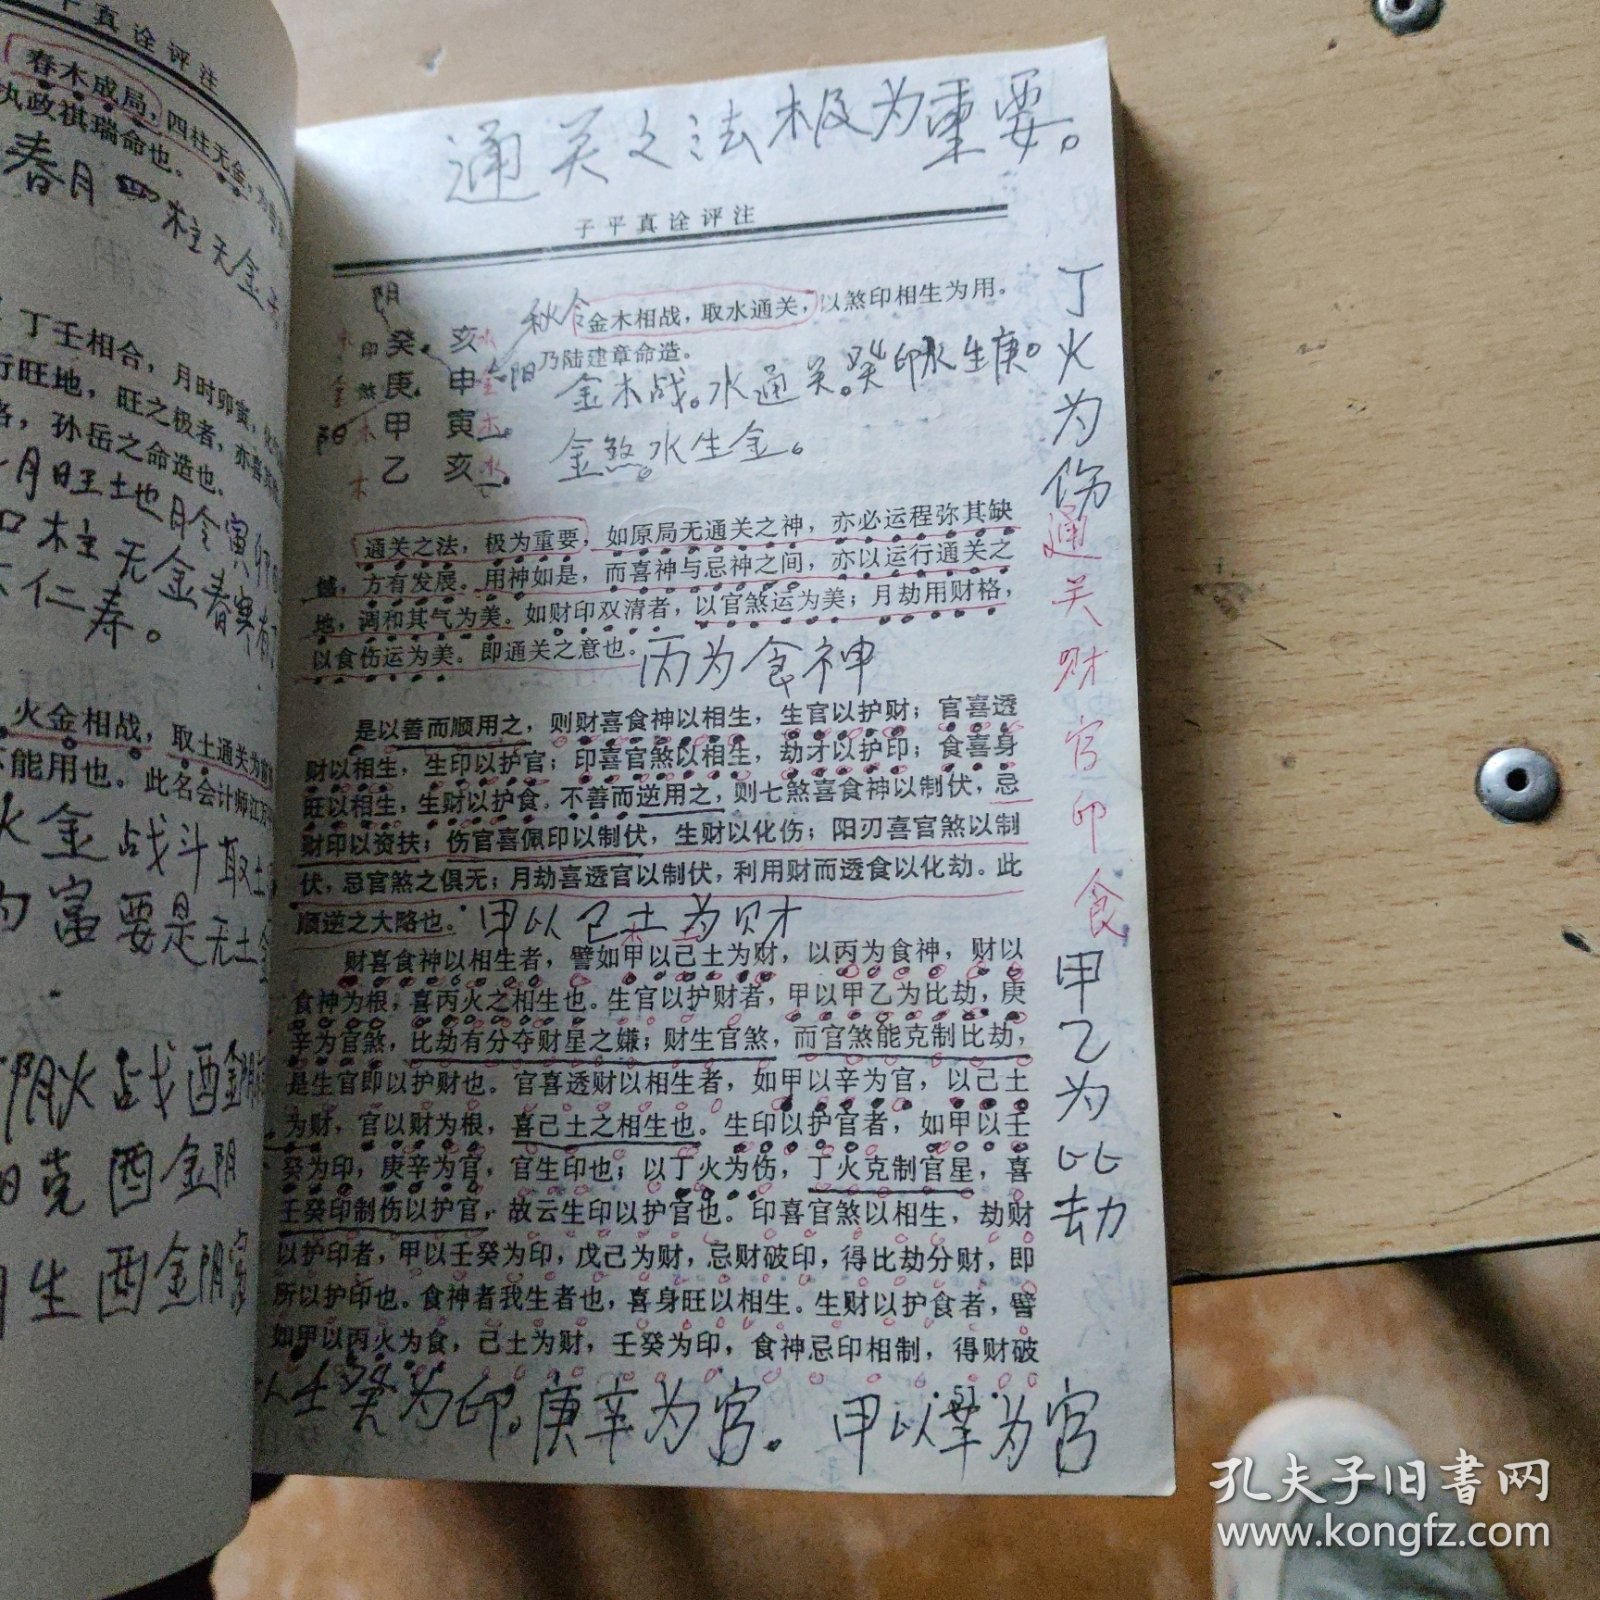 平真诠评注
春木成局，四柱无金，
执政祺瑞命也。
春月四柱无金
丁壬相合，月时卯寅，
行旺地，旺之极者，亦喜
格，孙岳之命造也。
月旺土也月令寅卯
柱无金春寅
仁寿。
火金相战，取土通关为
不能用也。此名会计师江万
火金战斗取土
为富要是无土金
阴火战酉金阴
克酉金阴
生酉金阴
通关之法极为重要。
子平真诠评注
秋令
金木相战，取水通关，以煞印相生为用。
乃陆建章命造。
印癸 亥
煞庚 申
甲 寅
乙 亥
金木战。水通关。癸印水生庚。
金煞。水生金。
通关之法，极为重要，如原局无通关之神，亦必运程弥其缺
憾，方有发展。用神如是，而喜神与忌神之间，亦以运行通关之
地，调和其气为美。如财印双清者，以官煞运为美；月劫用财格，
以食伤运为美。即通关之意也。
丙为食神
是以善而顺用之，则财喜食神以相生，生官以护财；官喜透
财以相生，生印以护官；印喜官煞以相生，劫才以护印；食喜身
旺以相生，生财以护食。不善而逆用之，则七煞喜食神以制伏，忌
财印以资扶；伤官喜佩印以制伏，生财以化伤；阳刃喜官煞以制
伏，忌官煞之俱无；月劫喜透官以制伏，利用财而透食以化劫。此
顺逆之大略也。
甲以己土为财
财喜食神以相生者，譬如甲以己土为财，以丙为食神，财以
食神为根，喜丙火之相生也。生官以护财者，甲以甲乙为比劫，庚
辛为官煞，比劫有分夺财星之嫌；财生官煞，而官煞能克制比劫，
是生官即以护财也。官喜透财以相生者，如甲以辛为官，以己土
为财，官以财为根，喜己土之相生也。生印以护官者，如甲以壬
癸为印，庚辛为官，官生印也；以丁火为伤，丁火克制官星，喜
壬癸印制伤以护官，故云生印以护官也。印喜官煞以相生，劫财
以护印者，甲以壬癸为印，戊己为财，忌财破印，得比劫分财，即
所以护印也。食神者我生者也，喜身旺以相生。生财以护食者，譬
如甲以丙火为食，己土为财，壬癸为印，食神忌印相制，得财破
·51·
以壬癸为印。庚辛为官。甲以辛为官
丁火为伤
通关财官印食
甲乙为比劫
孔夫子旧书网
www.kongfz.com